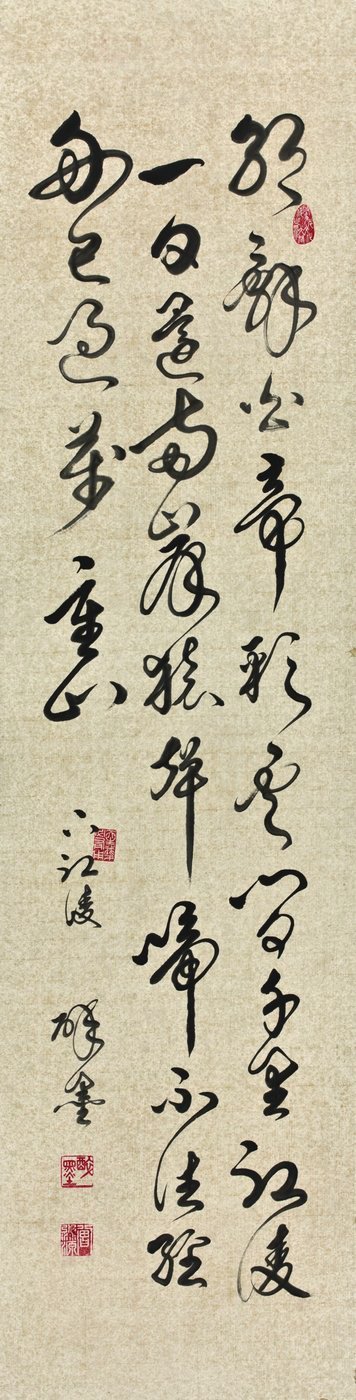 朝辭白帝彩雲間千里江陵
一日還兩岸猿聲啼不住輕
舟已過萬重山
下江陵
醉墨